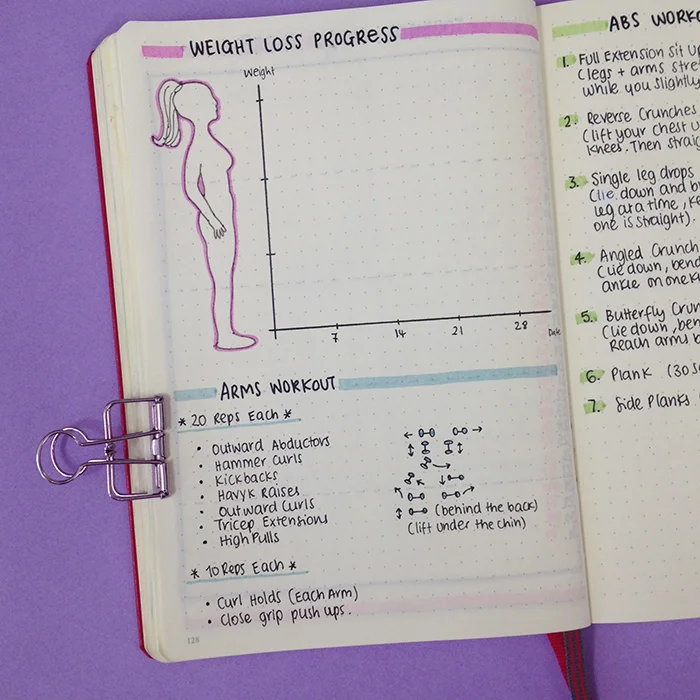 WEIGHT LOSS PROGRESS
Weight
7 14 21 28 Date
ARMS WORKOUT
* 20 Reps Each *
• Outward Abductors
• Hammer Curls
• Kickbacks
• Havyk Raises
• Outward Curls
• Tricep Extensions (behind the back)
• High Pulls (lift under the chin)
* 10 Reps Each *
• Curl Holds (Each Arm)
• Close grip push ups.
128
ABS WORKO
1. Full Extension sit up
(legs + arms stre
while you slightly
2. Reverse Crunches
(lift your chest u
knees. Then straig
3. Single leg drops
(lie down and b
leg at a time, ke
one is straight).
4. Angled Crunch
(lie down, bend
ankle on one k
5. Butterfly Crun
(lie down, ben
Reach arms b
6. Plank (30 s
7. Side Planks